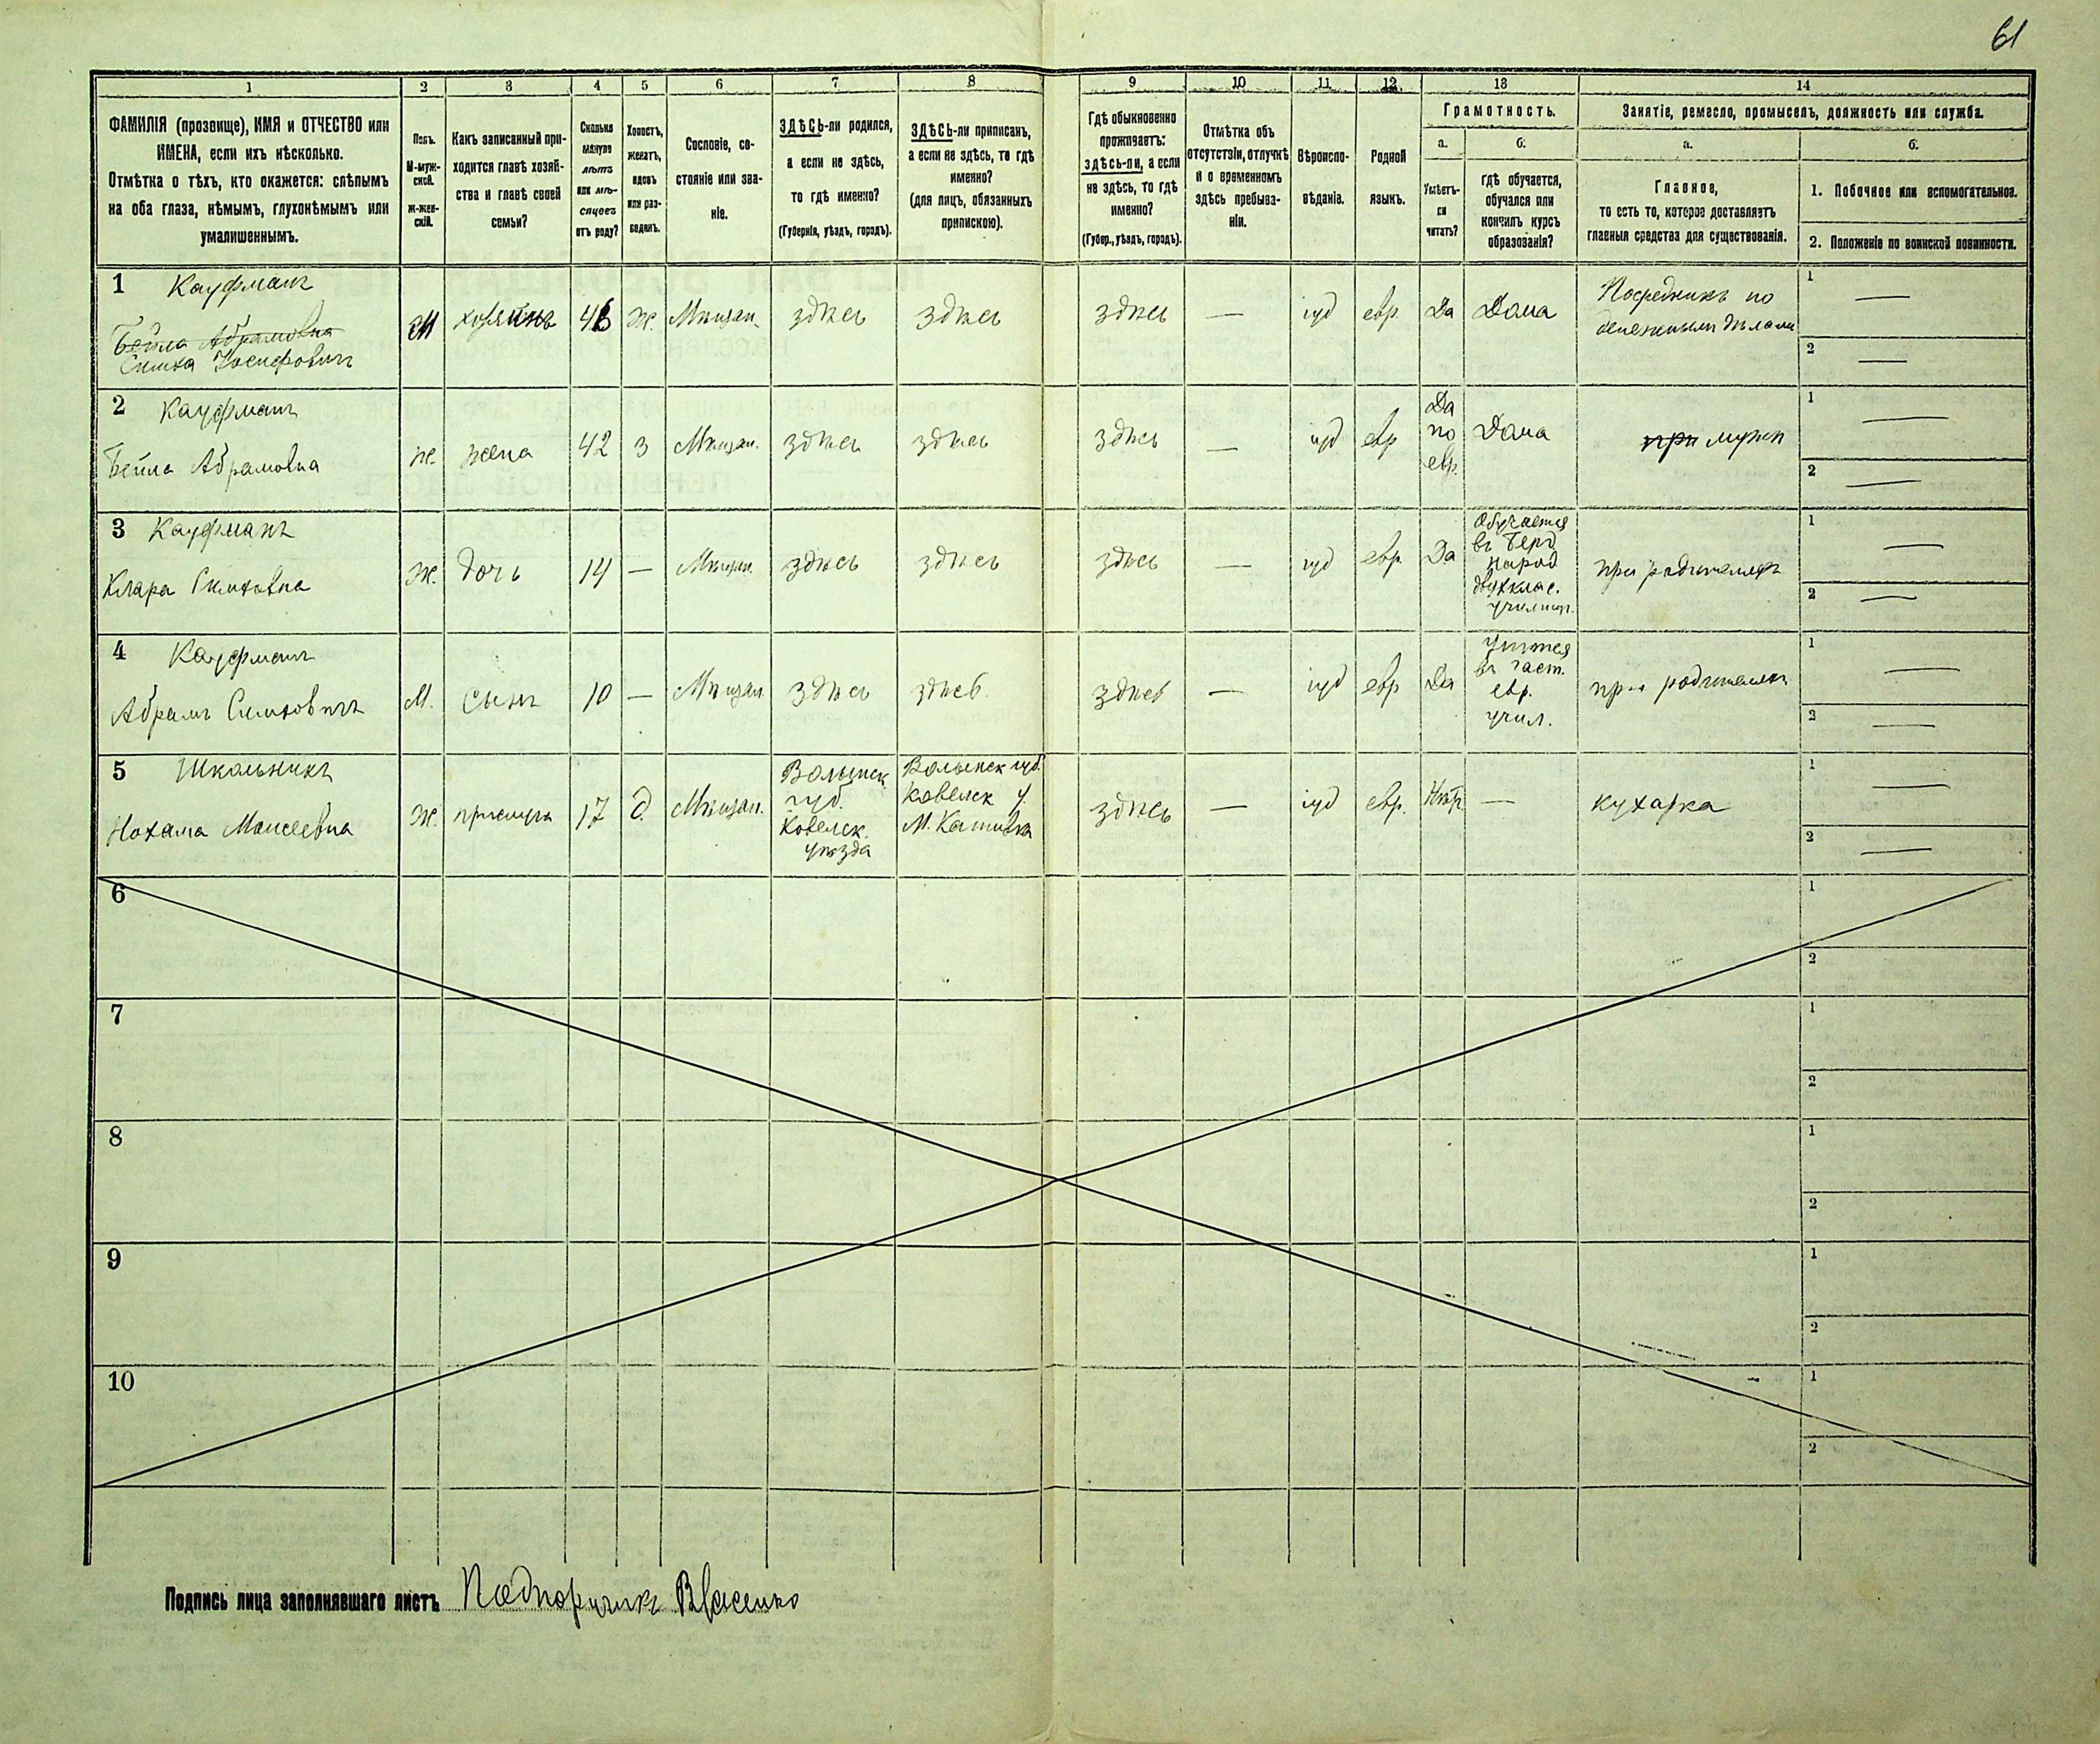 61
1 2 3 4 5 6 7 8 9 10 11 12 13 14
ФАМИЛІЯ (прозвище), ИМЯ и ОТЧЕСТВО или
ИМЕНА, если ихъ нѣсколько.
Отмѣтка о тѣхъ, кто окажется: слѣпымъ
на оба глаза, нѣмымъ, глухонѣмымъ или
умалишеннымъ.
Полъ.
М-муж-
ской.
Ж-жен-
скій.
Какъ записанный при-
ходится главѣ хозяй-
ства и главѣ своей
семьи?
Сколько
минуло
лѣтъ
или мѣ-
сяцевъ
отъ роду?
Холостъ,
женатъ,
вдовъ
или раз-
веденъ.
Сословіе, со-
стояніе или зва-
ніе.
ЗДѢСЬ-ли родился,
а если не здѣсь,
то гдѣ именно?
(Губернія, уѣздъ, городъ).
ЗДѢСЬ-ли приписанъ,
а если не здѣсь, то гдѣ
именно?
(для лицъ, обязанныхъ
припискою).
Гдѣ обыкновенно
проживаетъ:
здѣсь-ли, а если
не здѣсь, то гдѣ
именно?
(Губер., уѣздъ, городъ).
Отмѣтка объ
отсутствіи, отлучкѣ
и о временномъ
здѣсь пребыва-
ніи.
Вѣроиспо-
вѣданіе.
Родной
языкъ.
Грамотность.
а.
Умѣетъ-
ли
читать?
б.
гдѣ обучается,
обучался или
кончилъ курсъ
образованія?
Занятіе, ремесло, промыселъ, должность или служба.
а.
Главное,
то есть то, которое доставляетъ
главныя средства для существованія.
б.
1. Побочное или вспомогательное.
2. Положеніе по воинской повинности.
1 Кауфманъ
Бейла Абрамовна
Симха Іосифовичъ
М хозяинъ 46 ж. Мѣщан. здѣсь здѣсь здѣсь — іуд евр. Да Дома
Посредникъ по
денежнымъ дѣламъ
1 —
2 —
2 Кауфманъ
Бейла Абрамовна
ж. жена 42 з Мѣщан. здѣсь здѣсь здѣсь — іуд евр
Да
по
евр.
Дома при мужѣ
1 —
2 —
3 Кауфманъ
Клара Симховна
Ж. дочь 14 — Мѣщан. здѣсь здѣсь здѣсь — іуд евр. Да
Обучается
въ Берд
народ
двухклас.
училищ.
при родителяхъ
1 —
2 —
4 Кауфманъ
Абрамъ Симховичъ
М. сынъ 10 — Мѣщан здѣсь здѣсь здѣсь — іуд евр Да
Учится
въ част.
евр.
учил.
при родителяхъ
1 —
2 —
5 Школьникъ
Нохама Моисеевна
Ж. прислуга 17 д. Мѣщан.
Волынск
губ.
Ковелск.
уѣзда
Волынск губ.
Ковелск у.
М.
здѣсь — іуд евр. Нѣтъ — кухарка
1 —
2 —
6 1
2
7 1
2
8 1
2
9 1
2
10 1
2
Подпись лица заполнявшаго листъ Подпоручикъ